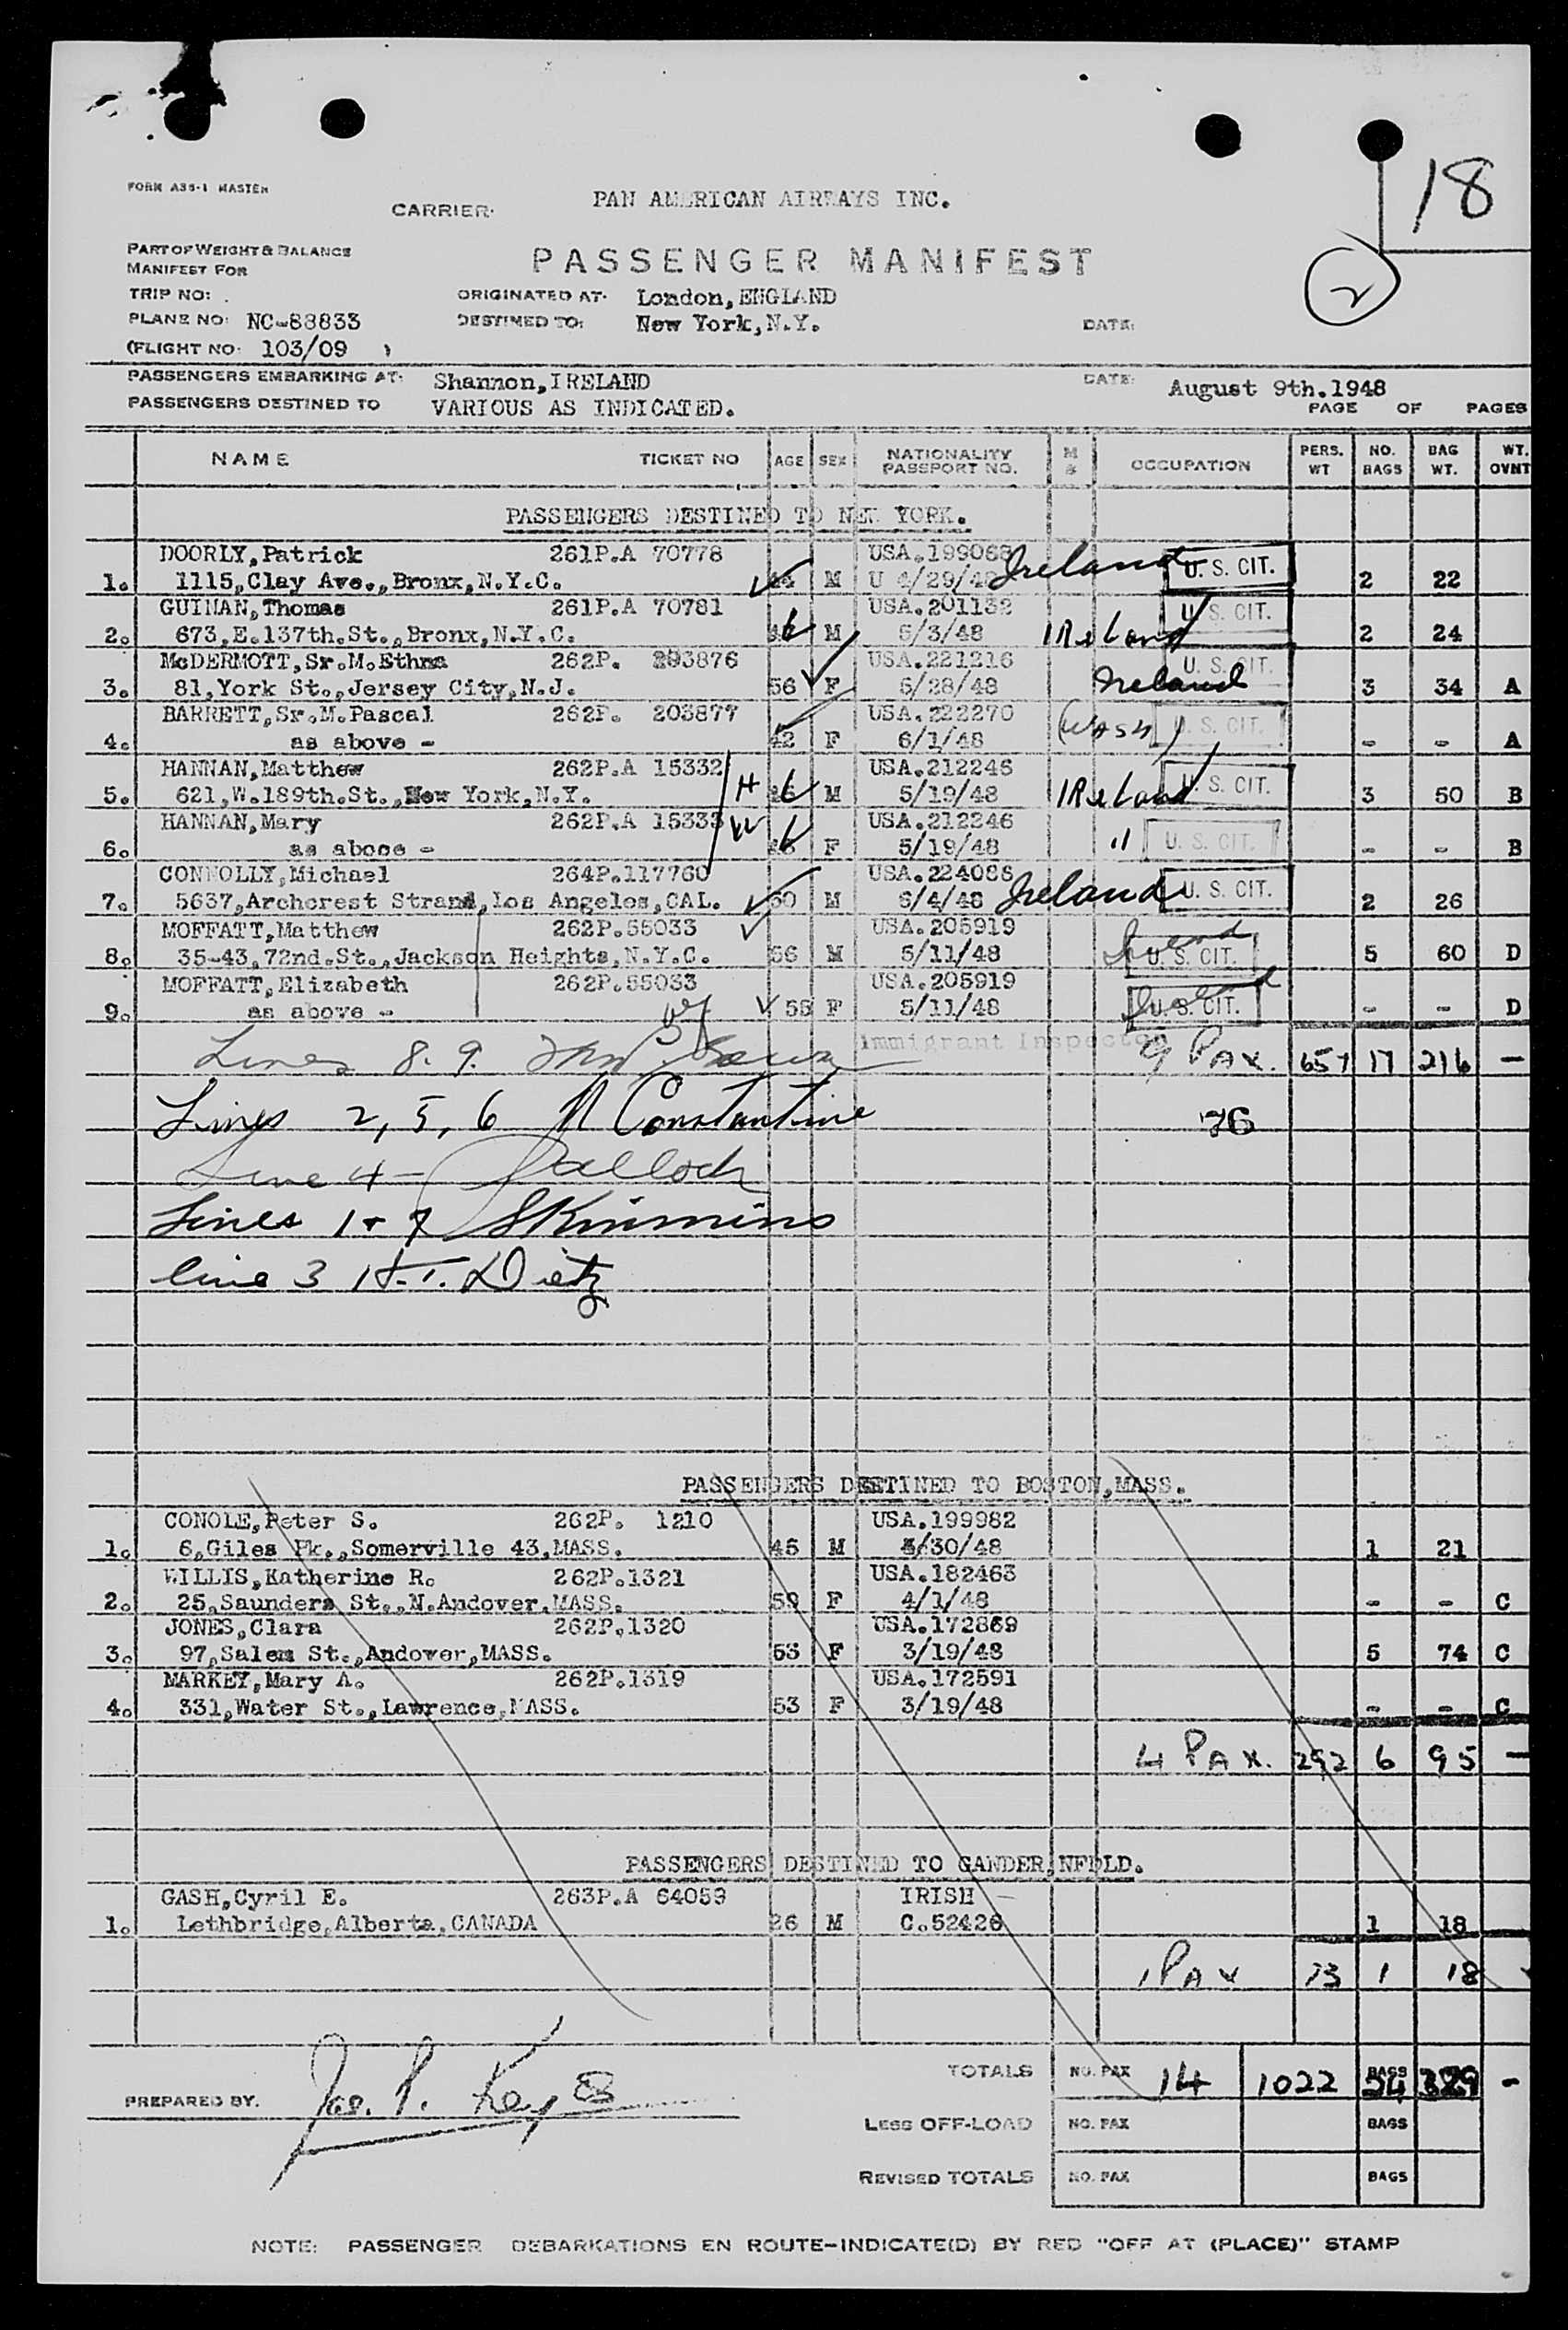 18
FORM A35-1 MASTER
CARRIER· PAN AMERICAN AIRWAYS INC.
PART OF WEIGHT & BALANCE
MANIFEST FOR
PASSENGER MANIFEST
2
TRIP NO: .
ORIGINATED AT· London, ENGLAND
PLANE NO: NC-88833
DESTINED TO: New York, N.Y.
DATE:
(FLIGHT NO: 103/09 )
PASSENGERS EMBARKING AT: Shannon, IRELAND
DATE: August 9th.1948
PASSENGERS DESTINED TO VARIOUS AS INDICATED.
PAGE OF PAGES
NAME TICKET NO AGE SEX NATIONALITY PASSPORT NO. M S OCCUPATION PERS. WT NO. BAGS BAG WT. WT. OVNT
PASSENGERS DESTINED TO NEW YORK.
DOORLY, Patrick 261P.A 70778 USA. Ireland U. S. CIT.
1. 1115, Clay Ave., Bronx, N.Y.C. M U 4/29/48 2 22
GUINAN, Thomas 261P.A 70781 USA.201132 U. S. CIT.
2. 673, E.137th.St., Bronx, N.Y.C. M 5/3/48 IReland 2 24
McDERMOTT, Sr.M.Ethna 262P. 203876 USA.221216 U. S. CIT.
3. 81, York St., Jersey City, N.J. 56 F 5/28/48 Ireland 3 34 A
BARRETT, Sr.M.Pascal 262P. 203877 USA.222270 (WASH) U. S. CIT.
4. as above - 42 F 6/1/48 - - A
HANNAN, Matthew 262P.A 15332 USA.212246 U. S. CIT.
5. 621, W.189th.St., New York, N.Y. H M 5/19/48 IReland 3 50 B
HANNAN, Mary 262P.A 15333 W USA.212246
6. as above - F 5/19/48 " U. S. CIT. - - B
CONNOLLY, Michael 264P.117760 USA.224086
7. 5637, Archcrest Strand, Los Angeles, CAL. 60 M 6/4/48 Ireland U. S. CIT. 2 26
MOFFATT, Matthew 262P.55033 USA.205919
8. 35-43, 72nd.St., Jackson Heights, N.Y.C. 56 M 5/11/48 U. S. CIT. 5 60 D
MOFFATT, Elizabeth 262P.55033 USA.205919
9. as above - 55 F 5/11/48 U. S. CIT. - - D
Immigrant Inspector
Lines 8. 9. 9 PAX. 657 17 216 -
Lines 2, 5, 6 N Constantine 76
Line 4 -
Lines 1 + 7 Skimmins
line 3 H.T. Dietz
PASSENGERS DESTINED TO BOSTON, MASS.
CONOLE, Peter S. 262P. 1210 USA.199982
1. 6, Giles Pk., Somerville 43, MASS. 45 M /30/48 1 21
WILLIS, Katherine R. 262P.1321 USA.182463
2. 25, Saunders St., N.Andover, MASS. 59 F 4/1/48 - - C
JONES, Clara 262P.1320 USA.172869
3. 97, Salem St., Andover, MASS. 53 F 3/19/48 5 74 C
MARKEY, Mary A. 262P.1319 USA.172591
4. 331, Water St., Lawrence, MASS. 53 F 3/19/48 - - C
4 PAX. 292 6 95 -
PASSENGERS DESTINED TO GANDER, NFDLD.
GASH, Cyril E. 263P.A 64059 IRISH -
1. Lethbridge, Alberta, CANADA 26 M C.52426 1 18
1 PAX 73 1 18
TOTALS NO. PAX 14 1022 BAGS 24 329 -
PREPARED BY. Jas. P. Keyes
LESS OFF-LOAD NO. PAX BAGS
REVISED TOTALS NO. PAX BAGS
NOTE: PASSENGER DEBARKATIONS EN ROUTE-INDICATE(D) BY RED "OFF AT (PLACE)" STAMP